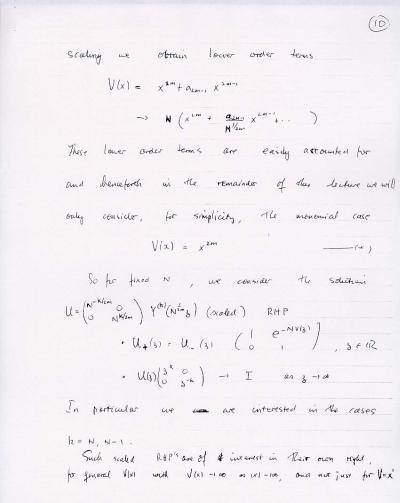 10
scaling we obtain lower order terms
V(x) = x^{2m} + a_{2m-1} x^{2m-1}
→ N ( x^{2m} + \frac{a_{2m-1}}{N^{1/2m}} x^{2m-1} + ... )
These lower order terms are easily accounted for
and henceforth in the remainder of this lecture we will
only consider, for simplicity, the monomial case
V(x) = x^{2m}
So for fixed N, we consider the solution
U = \begin{pmatrix} N^{-k/2m} & 0 \\ 0 & N^{k/2m} \end{pmatrix} Y^{(k)}(N^{\frac{1}{2m}} z) (scaled) RHP
• U_+(z) = U_-(z) \begin{pmatrix} 1 & e^{-NV(z)} \\ 0 & 1 \end{pmatrix}, z ∈ ℝ
• U(z) \begin{pmatrix} z^{-k} & 0 \\ 0 & z^{k} \end{pmatrix} → I as z → ∞
In particular we are interested in the cases
k = N, N-1.
Such scaled RHP's are of interest in their own right,
for general V(x) with V(x) → ∞ as |x| → ∞, and not just for V = x